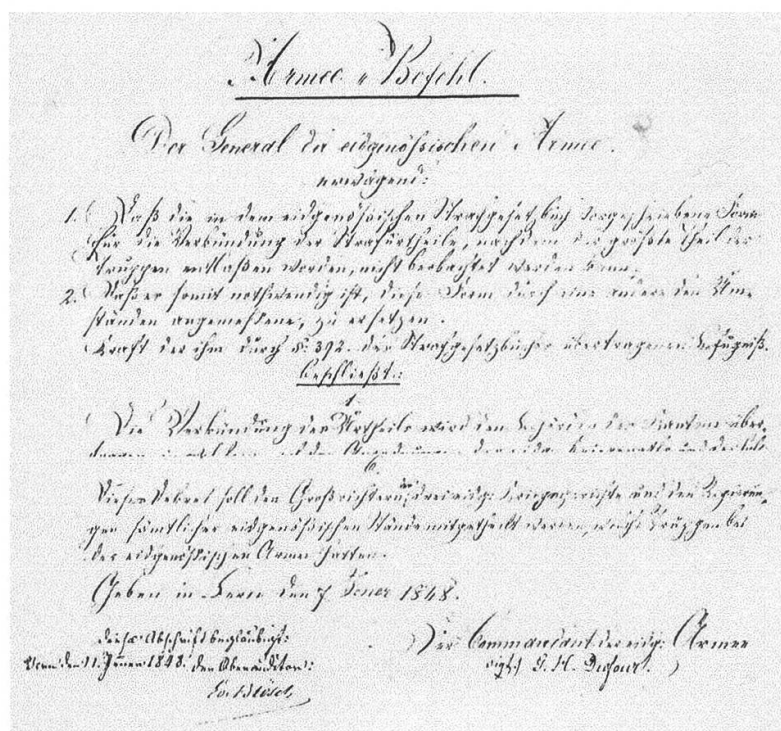 Armee-Befehl.
Der General der eidgenössischen Armee.
erwägend:
1. Daß die in dem eidgenössischen Strafgesetzbuch vorgeschriebene Form
für die Verkündung der Strafurtheile, nachdem der größte Theil der
Truppen entlaßen worden, nicht beobachtet werden kann.
2. Daß es somit nothwendig ist, diese Form durch eine andere den Um-
ständen angemeßene, zu ersetzen.
Kraft der ihm durch §: 392. des Strafgesetzbuches übertragenen Befugniß.
beschließt:
1.
Die Verkündung des Urtheils wird den Behörden der Kantone über-
6.
Dieses Dekret soll den Großrichtern der drei eidg: Kriegsgerichte und den Regierun-
gen sämtlicher eidgenößischen Stände mitgetheilt werden, welche Truppen bei
der eidgenößischen Armee hatten.
Geben in Bern den 7 Jenner 1848.
Der Commandant der eidg: Armee
sigt: G. H. Dufour.
diese Abschrift beglaubigt:
Bern den 11. Jenner 1848. Der Oberauditor: